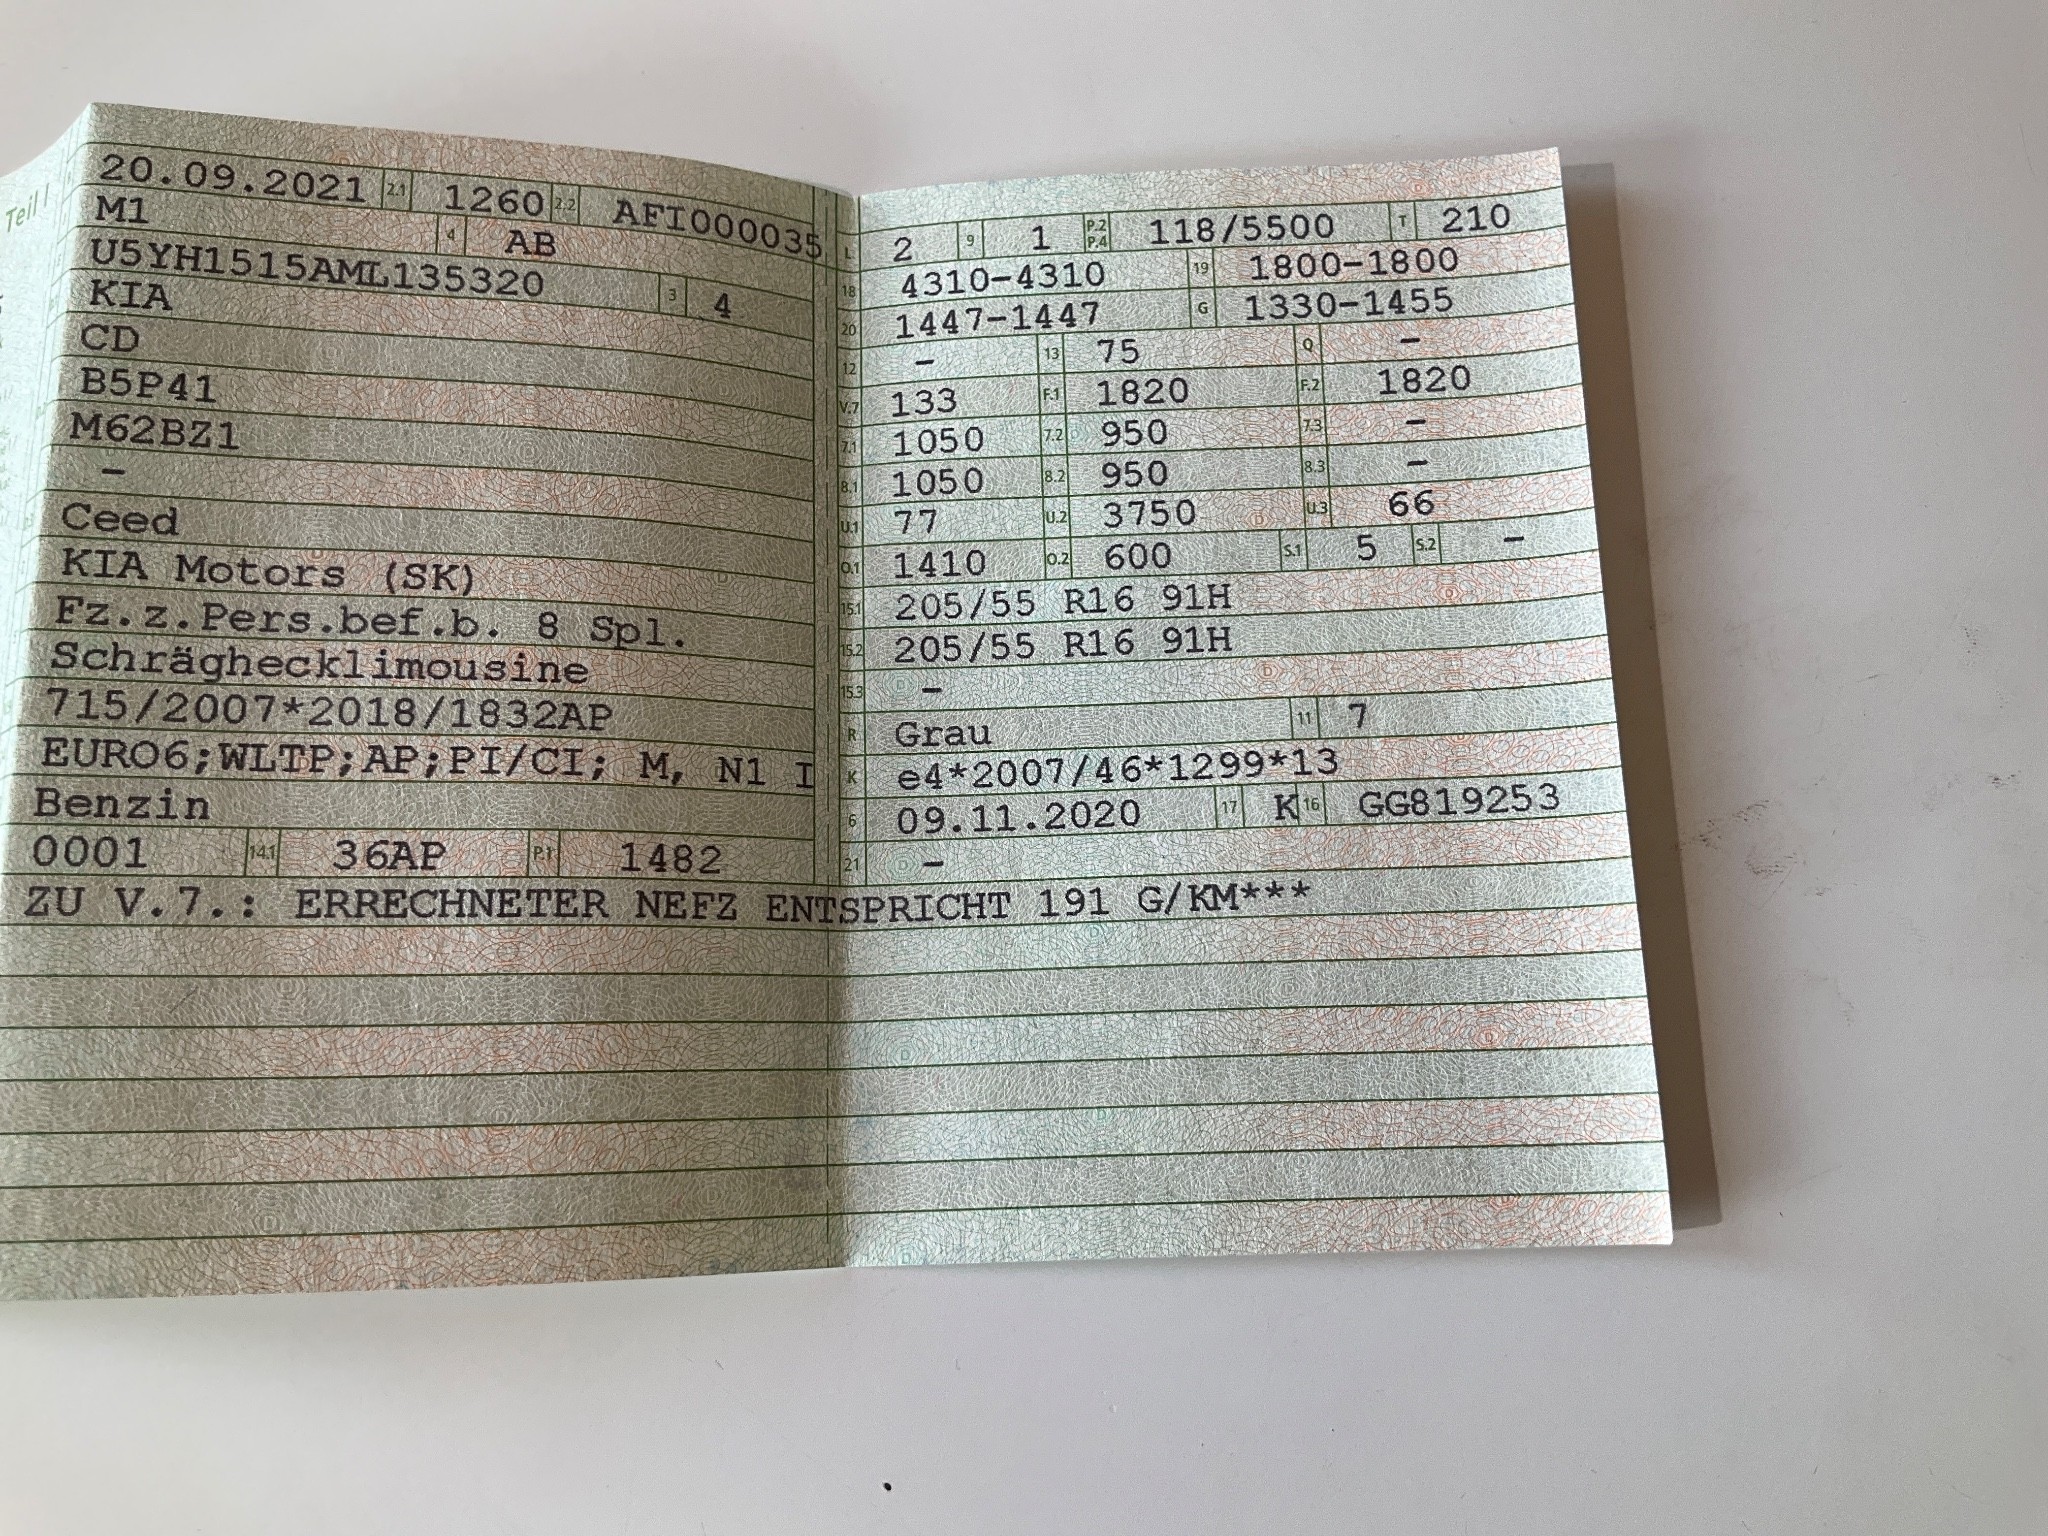 Teil I
20.09.2021 2.1 1260 2.2 AFI000035
M1 4 AB
U5YH1515AML135320 3 4
KIA
CD
B5P41
M62BZ1
–
Ceed
KIA Motors (SK)
Fz.z.Pers.bef.b. 8 Spl.
Schräghecklimousine
715/2007*2018/1832AP
EURO6;WLTP;AP;PI/CI; M, N1 I
Benzin
0001 14.1 36AP P.1 1482
L 2 9 1 P.2 P.4 118/5500 T 210
18 4310-4310 19 1800-1800
20 1447-1447 G 1330-1455
12 – 13 75 Q –
V.7 133 F.1 1820 F.2 1820
7.1 1050 7.2 950 7.3 –
8.1 1050 8.2 950 8.3 –
U.1 77 U.2 3750 U.3 66
O.1 1410 O.2 600 S.1 5 S.2 –
15.1 205/55 R16 91H
15.2 205/55 R16 91H
15.3 –
R Grau 11 7
K e4*2007/46*1299*13
6 09.11.2020 17 K 16 GG819253
21 –
ZU V.7.: ERRECHNETER NEFZ ENTSPRICHT 191 G/KM***